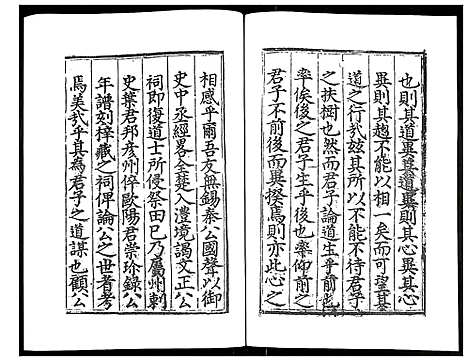 也則其道異尊道異則其心異其心
異則其趨不能以相一矣而可望其
道之行哉玆其所以不能不待君子
之扶樹也然而君子論道生乎前而
率俟後之君子生乎後也率仰前之
君子不前後而異揆焉則亦此心之
相感乎爾吾友無錫秦公國聲以御
史中丞經畧全楚入澧境謁文正公
祠即復道士所侵祭田已乃屬州刺
史葉君邦彥州倅歐陽君崇珍錄公
年譜刻梓藏之祠俾論公之世者考
焉美哉乎其為君子之道謀也顧公